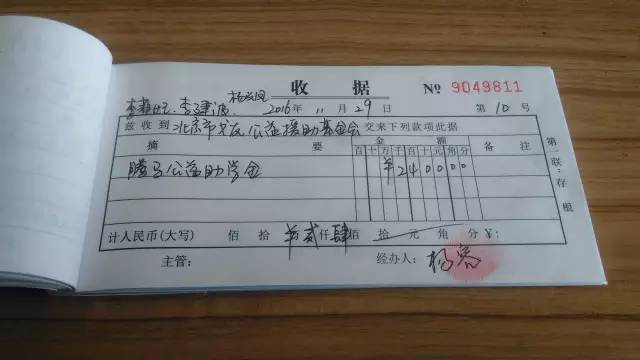 收 据 № 9049811
2016年 11月29日 第10号
兹收到 北京市 公益援助基金会 交来下列款项此据
摘 要 金 额 备 注
百十万千百十元角分
腾马公益助学金 ¥240000
计人民币(大写) 佰 拾 万贰仟肆佰 拾 元 角 分 ¥:
主管: 经办人: 杨
第一联:存根